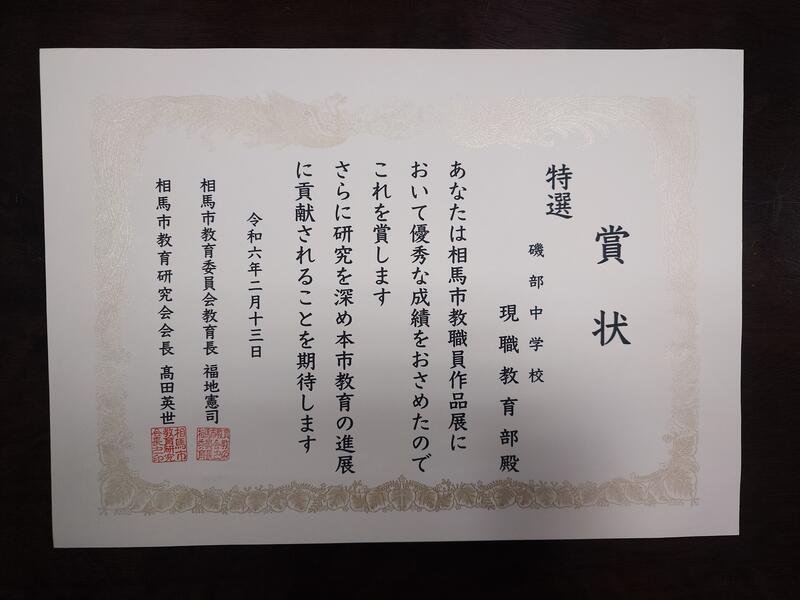 賞状
特選
磯部中学校
現職教育部殿
あなたは相馬市教職員作品展に
おいて優秀な成績をおさめたので
これを賞します
さらに研究を深め本市教育の進展
に貢献されることを期待します
令和六年二月十三日
相馬市教育委員会教育長 福地憲司
相馬市教育研究会会長 髙田英世
相馬市
教育研究
会長之印